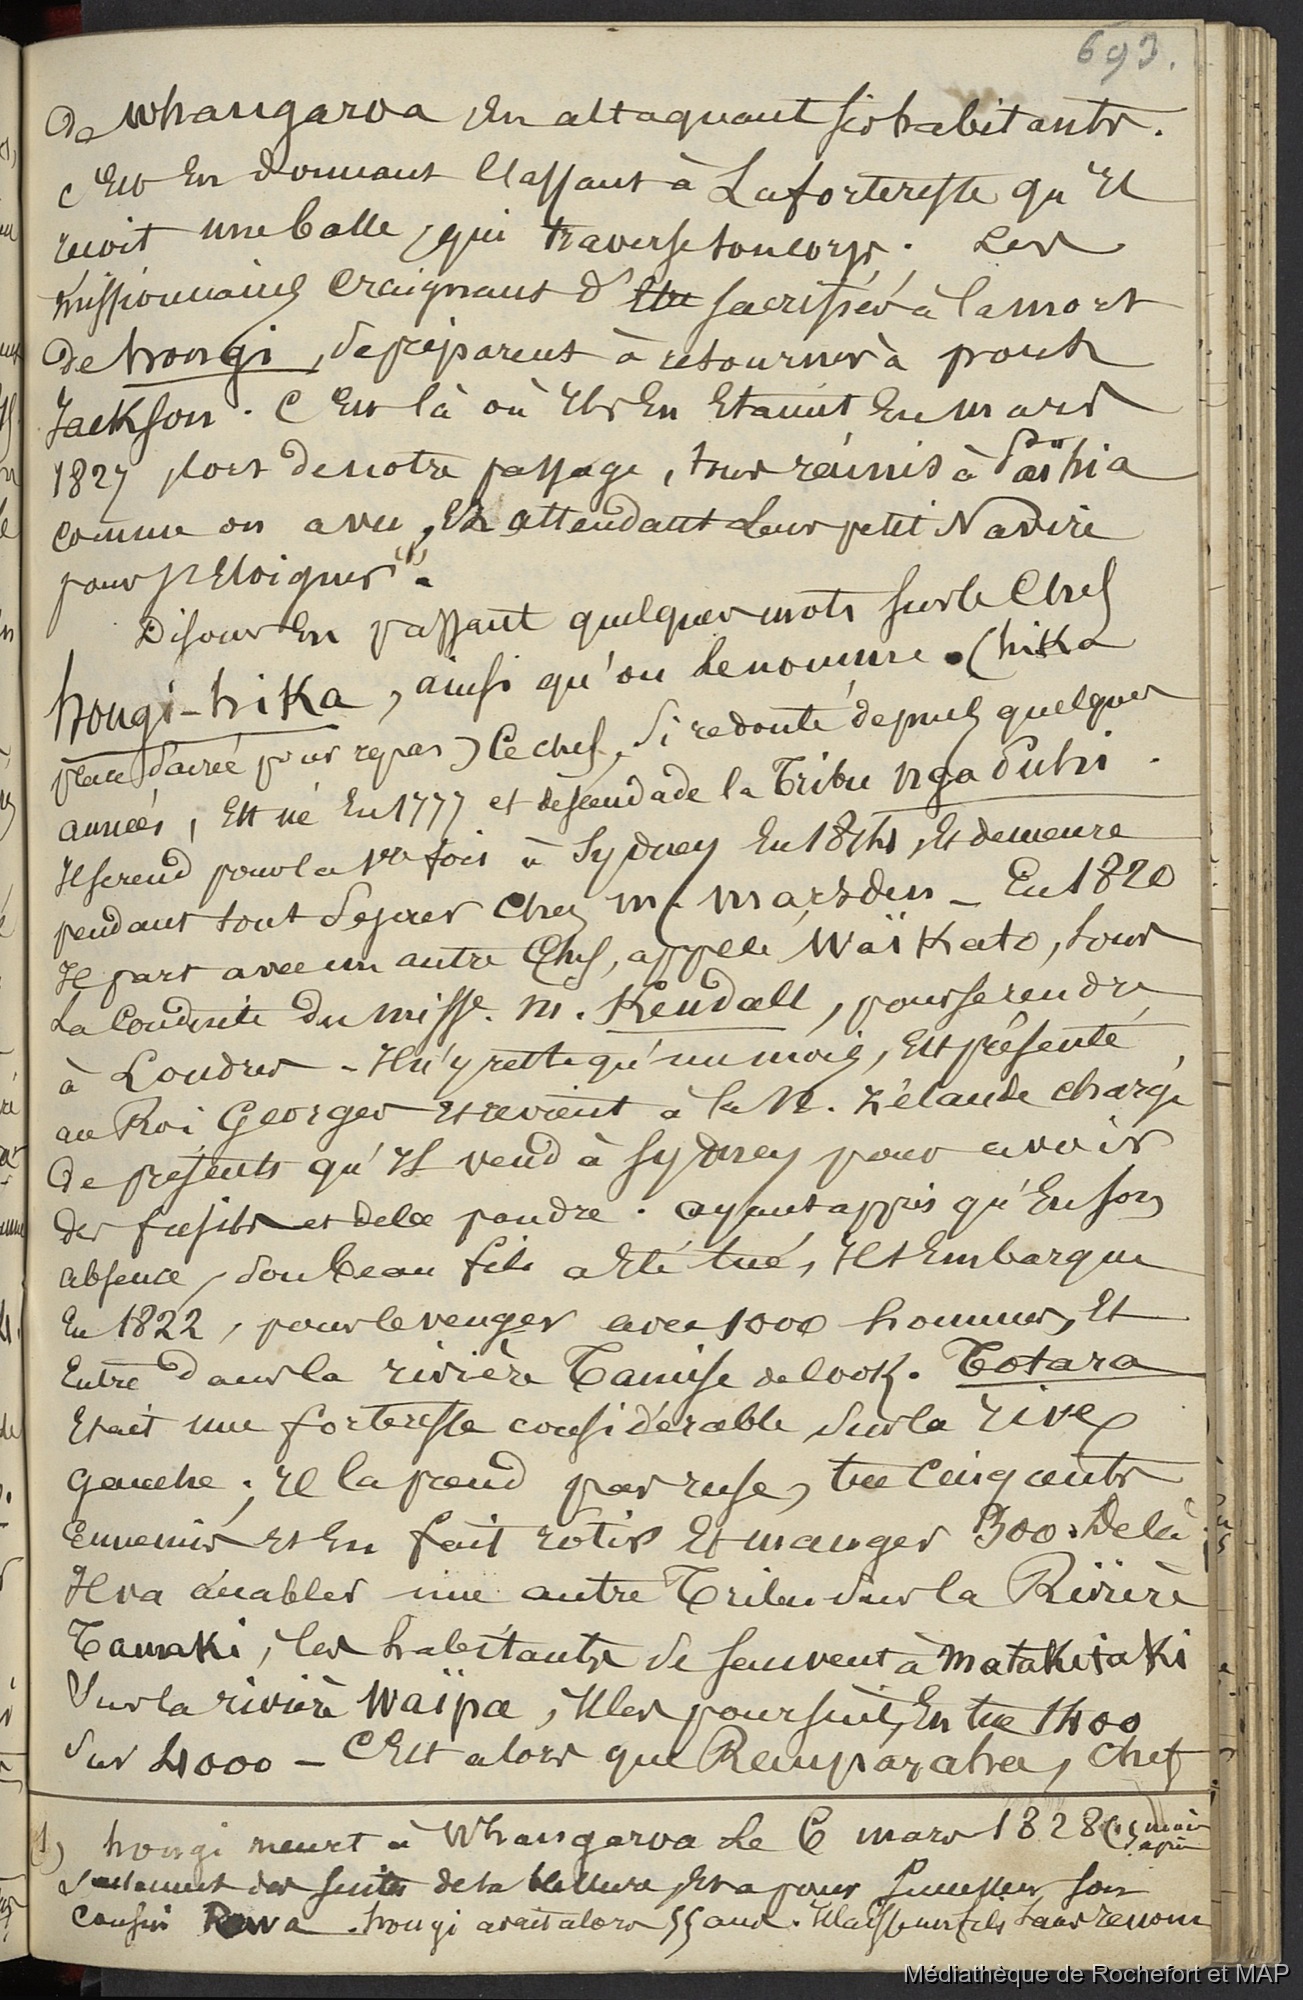 693.
De Whangaroa En attaquant ses habitants.
C'Est En donnant l'assaut à La forteresse qu'Il
reçoit une balle, qui traverse son corps. Les
missionnaires Craignant d'Etre sacrifiés à la mort
de hongi, se préparent à retourner à port
Jackson. C'Est là où Ils En Etaient En mars
1827, lors de notre passage, tous réunis à Païhia
comme on a vu, Et attendant Leur petit Navire
pour s'Eloigner (1).
Disons En passant quelques mots sur le Chef
hongi-hika, ainsi qu'on le nomme. (hika
place sacrée pour repas) Ce chef, si redouté depuis quelques
années, Est né En 1777 et descend de la Tribu nga Puhi.
Il se rend pour la 1re fois à Sydney En 1814, Et demeure
pendant tout Séjour Chez Mr Marsden _ En 1820
Il part avec un autre Chef, appelé Waïkato, sous
La Conduite du miss. M. Kendall, pour se rendre
à Londres - Il n'y reste qu'un mois, Est présenté
au Roi Georges Et revient à la Nle. Zélande chargé
de présents qu'Il vend à Sydney pour avoir
des fusils et de la poudre. ayant appris qu'En son
absence, son beau fils a Eté tué, Il s'Embarque
En 1822, pour le venger avec 1000 hommes, Et
Entre dans la rivière Tamise de Cook. Totara
Etait une forteresse considérable sur la rive
gauche. Il la prend par ruse, tue Cinq cents
Ennemis Et En fait rôtir Et manger 300. De là
Il va accabler une autre Tribu sur la Rivière
Tamaki, les habitants se sauvent à Matakitaki
Sur la rivière Waïpa, Il les poursuit, En tue 1400
sur 4000 _ C'Est alors que Rauparaha, Chef
(1) hongi meurt à Whangaroa Le 6 mars 1828 (15 mois après
Seulement des suites de la blessure, Et a pour Successeur son
Cousin Rewa. hongi avait alors 55 ans. Il laisse un fils sans renom
Médiathèque de Rochefort et MAP